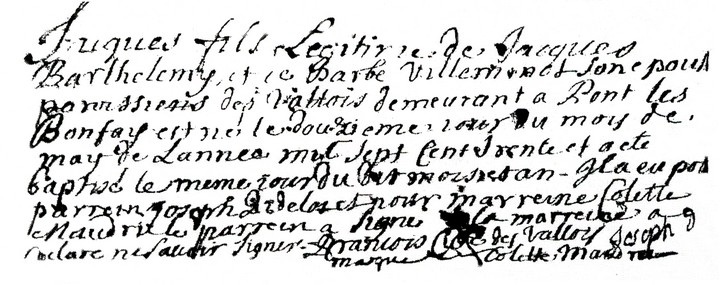 Juques fils Legitime de Jacques
Barthelemy et de Barbe Villeminot son epous
paroissiens des Vallois demeurant a Pont les
Bonfay est né le douzieme jour du mois de
may de Lannee mil sept Cent trente et a ete
baptisé le meme jour du mois et an Il a eu pou
parrein joseph didelot et pour marreine Colette
Maudru le parrein a signe la marreine a
declare ne savoir signer francois des Vallois Joseph d
marque Colette Maudru